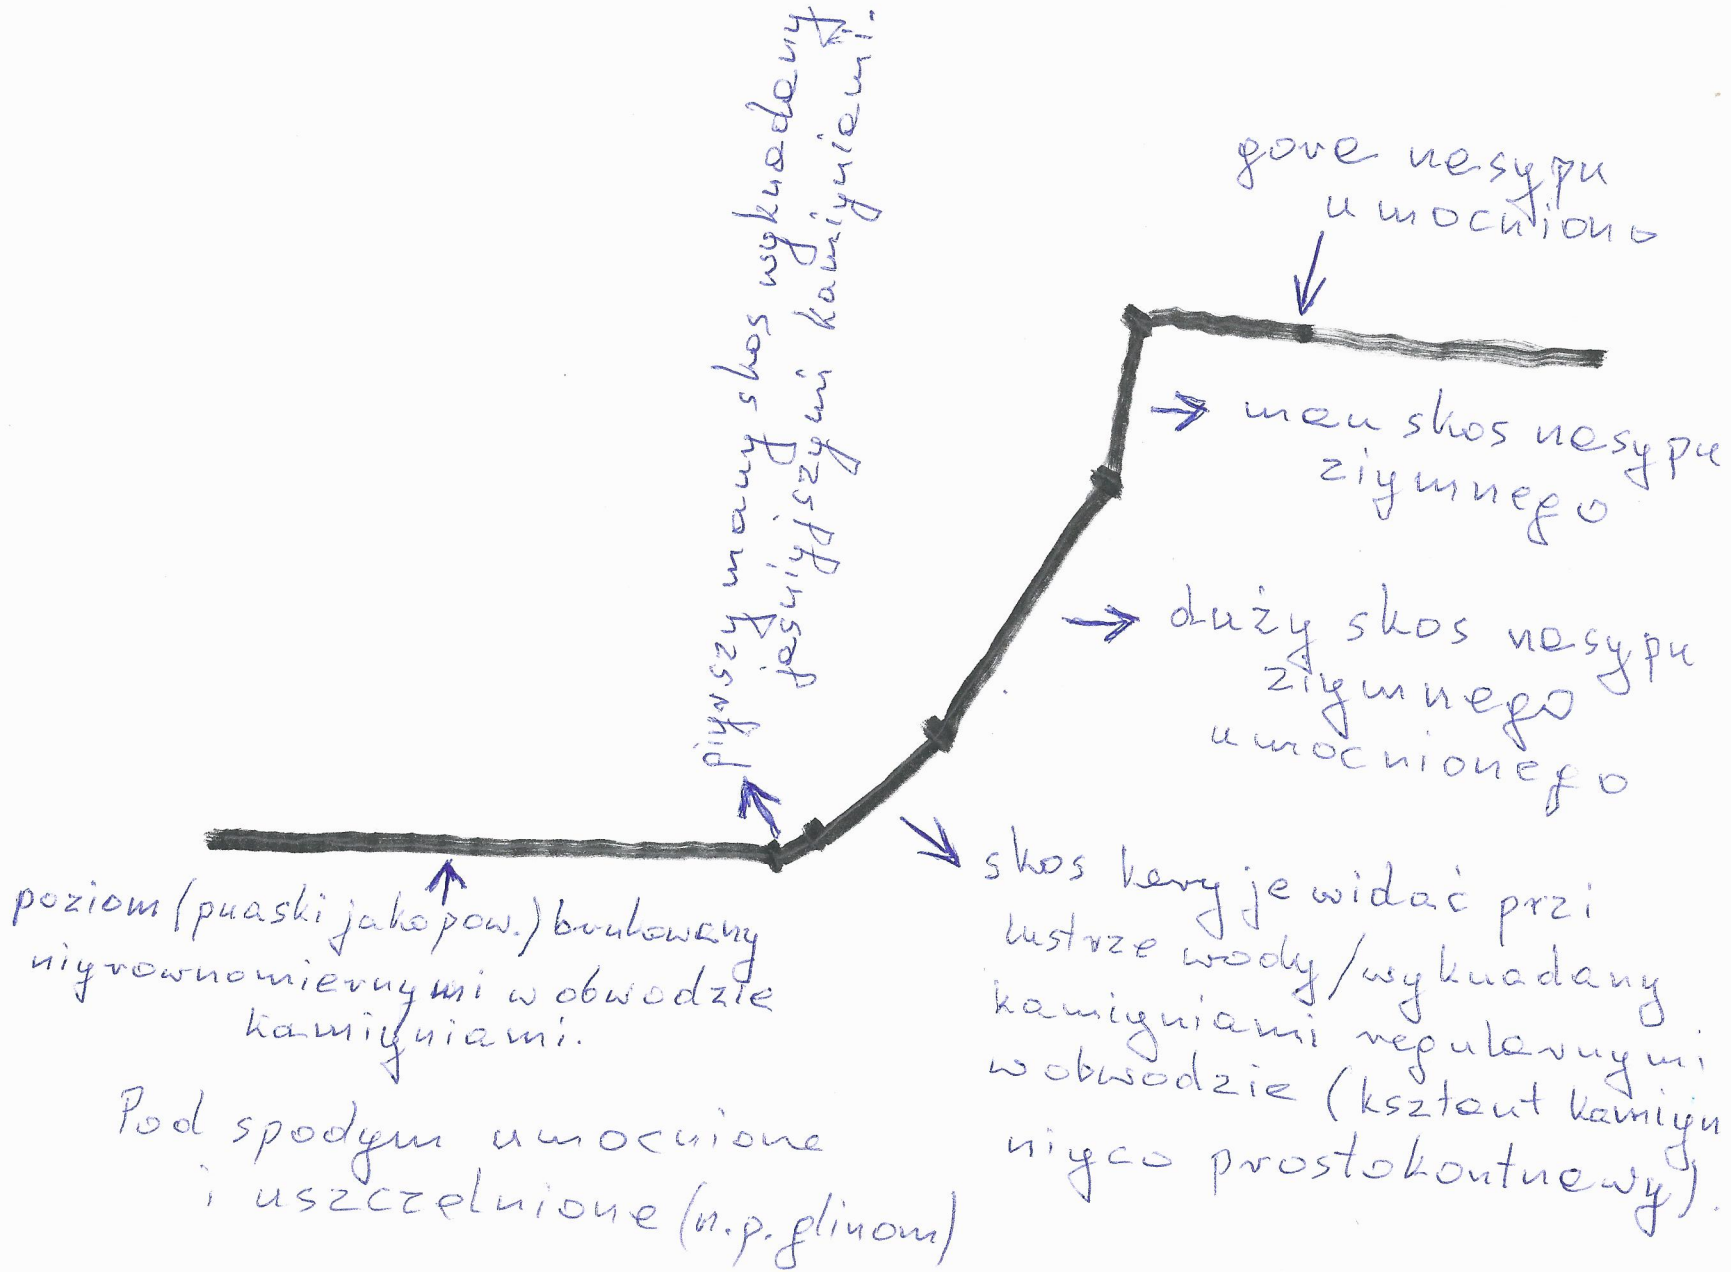 piyrszy mauy skos wykuadany
jaśniyjszymi kamiyniami.
gora nasypu
umocniono
mau skos nasypu
ziymnego
duży skos nasypu
ziymnego
umocnionego
skos kery je widać przi
lustrze wody/wykuadany
kamiyniami regularnymi
w obwodzie (ksztaut kamiyn
niyco prostokontnawy).
poziom (puaski jako pow.) brukowany
niyrownomiernymi w obwodzie
kamiyniami.
Pod spodym umocnione
i uszczelnione (n.p. glinom)